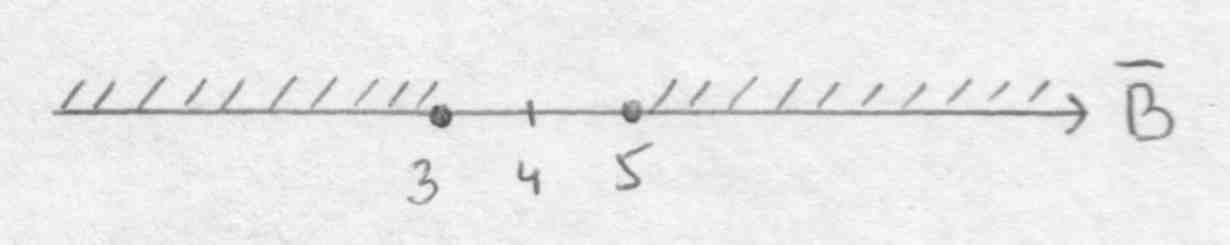 B̅
3 4 5